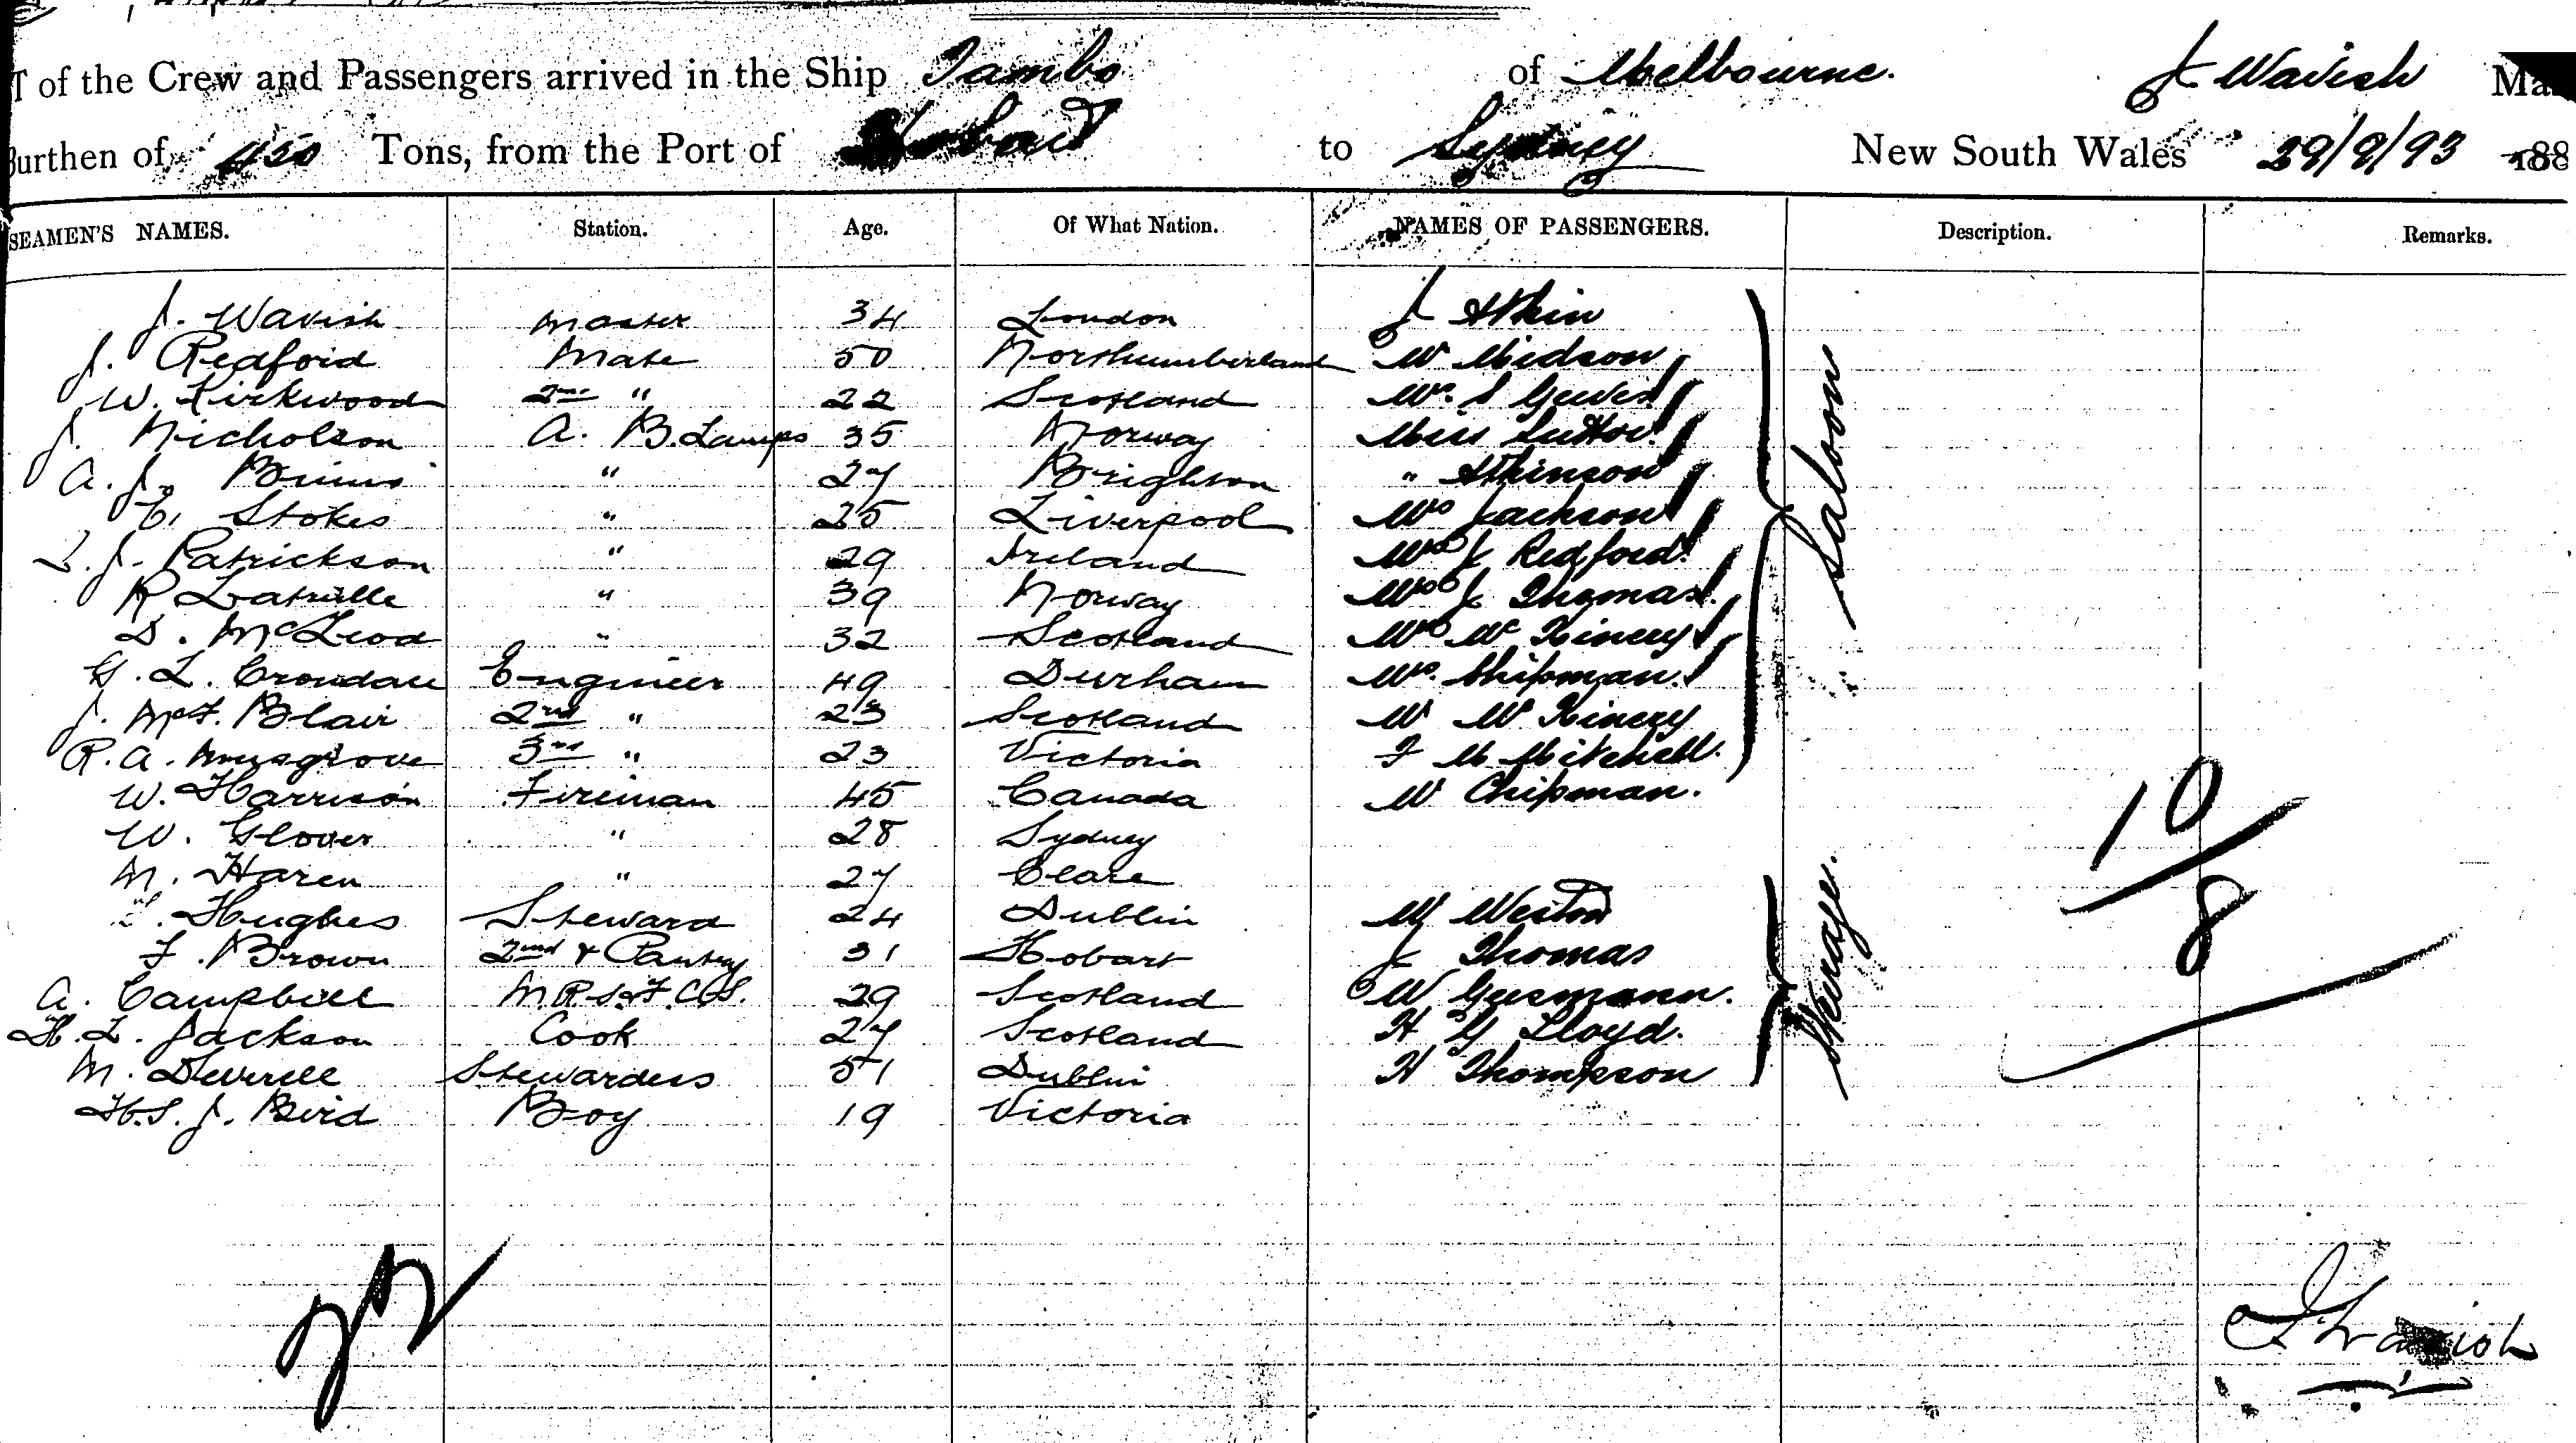 T of the Crew and Passengers arrived in the Ship Tambo of Melbourne. J Wavish Ma
Burthen of 450 Tons, from the Port of Hobart to Sydney New South Wales 29/9/93 188
SEAMEN'S NAMES. Station. Age. Of What Nation. NAMES OF PASSENGERS. Description. Remarks.
J. Wavish Master 34 London J Atkin
J. Redford Mate 50 Northumberland W Midson
W. Kirkwood 2nd " 22 Scotland Mrs. S Geeves
J. Nicholson A. B. Lamps 35 Norway Miss Sutton
A. J. Binns " 27 Brighton " Atkinson
E. Stokes " 25 Liverpool Mrs Jackson
J. Patrickson " 29 Ireland Mrs J Redford
R " 39 Norway Mrs J Thomas
D. McLeod " 32 Scotland Mrs W Kinery
G. L. Engineer 49 Durham Mrs. Shipman
J. McF. Blair 2nd " 23 Scotland W W Kinery
R. A. Musgrove 3rd " 23 Victoria F M Mitchell.
W. Harrison Fireman 45 Canada W Chipman.
Saloon
W. Glover " 28 Sydney
M. Haren " 27 Clare
Hughes Steward 24 Dublin W Weston
F. Brown 2nd & Pantry 31 Hobart J Thomas
A. Campbell 29 Scotland W
H. L. Jackson Cook 27 Scotland H G Lloyd.
M. Deverell Stewardess 51 Dublin H Thompson
H. S. J. Bird Boy 19 Victoria
Steerage.
10
8
J Wavish